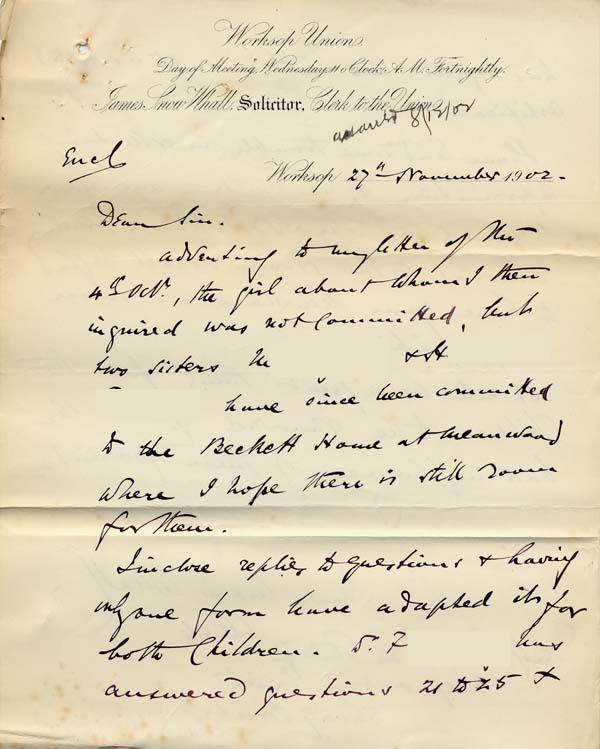 Worksop Union.
Day of Meeting, Wednesday, 11 o'Clock A.M. Fortnightly.
James Snow Whall, Solicitor, Clerk to the Union.
8/12/02
Encl
Worksop 27th November 1902.
Dear Sir.
Adverting to my letter of the
4th Octr., the girl about whom I then
inquired was not committed, but
two sisters M & H
have since been committed
to the Beckett Home at Meanwood
where I hope there is still room
for them.
I inclose replies to questions & having
only one form have adapted it for
both Children. Dr. F has
answered questions 21 to 25 &